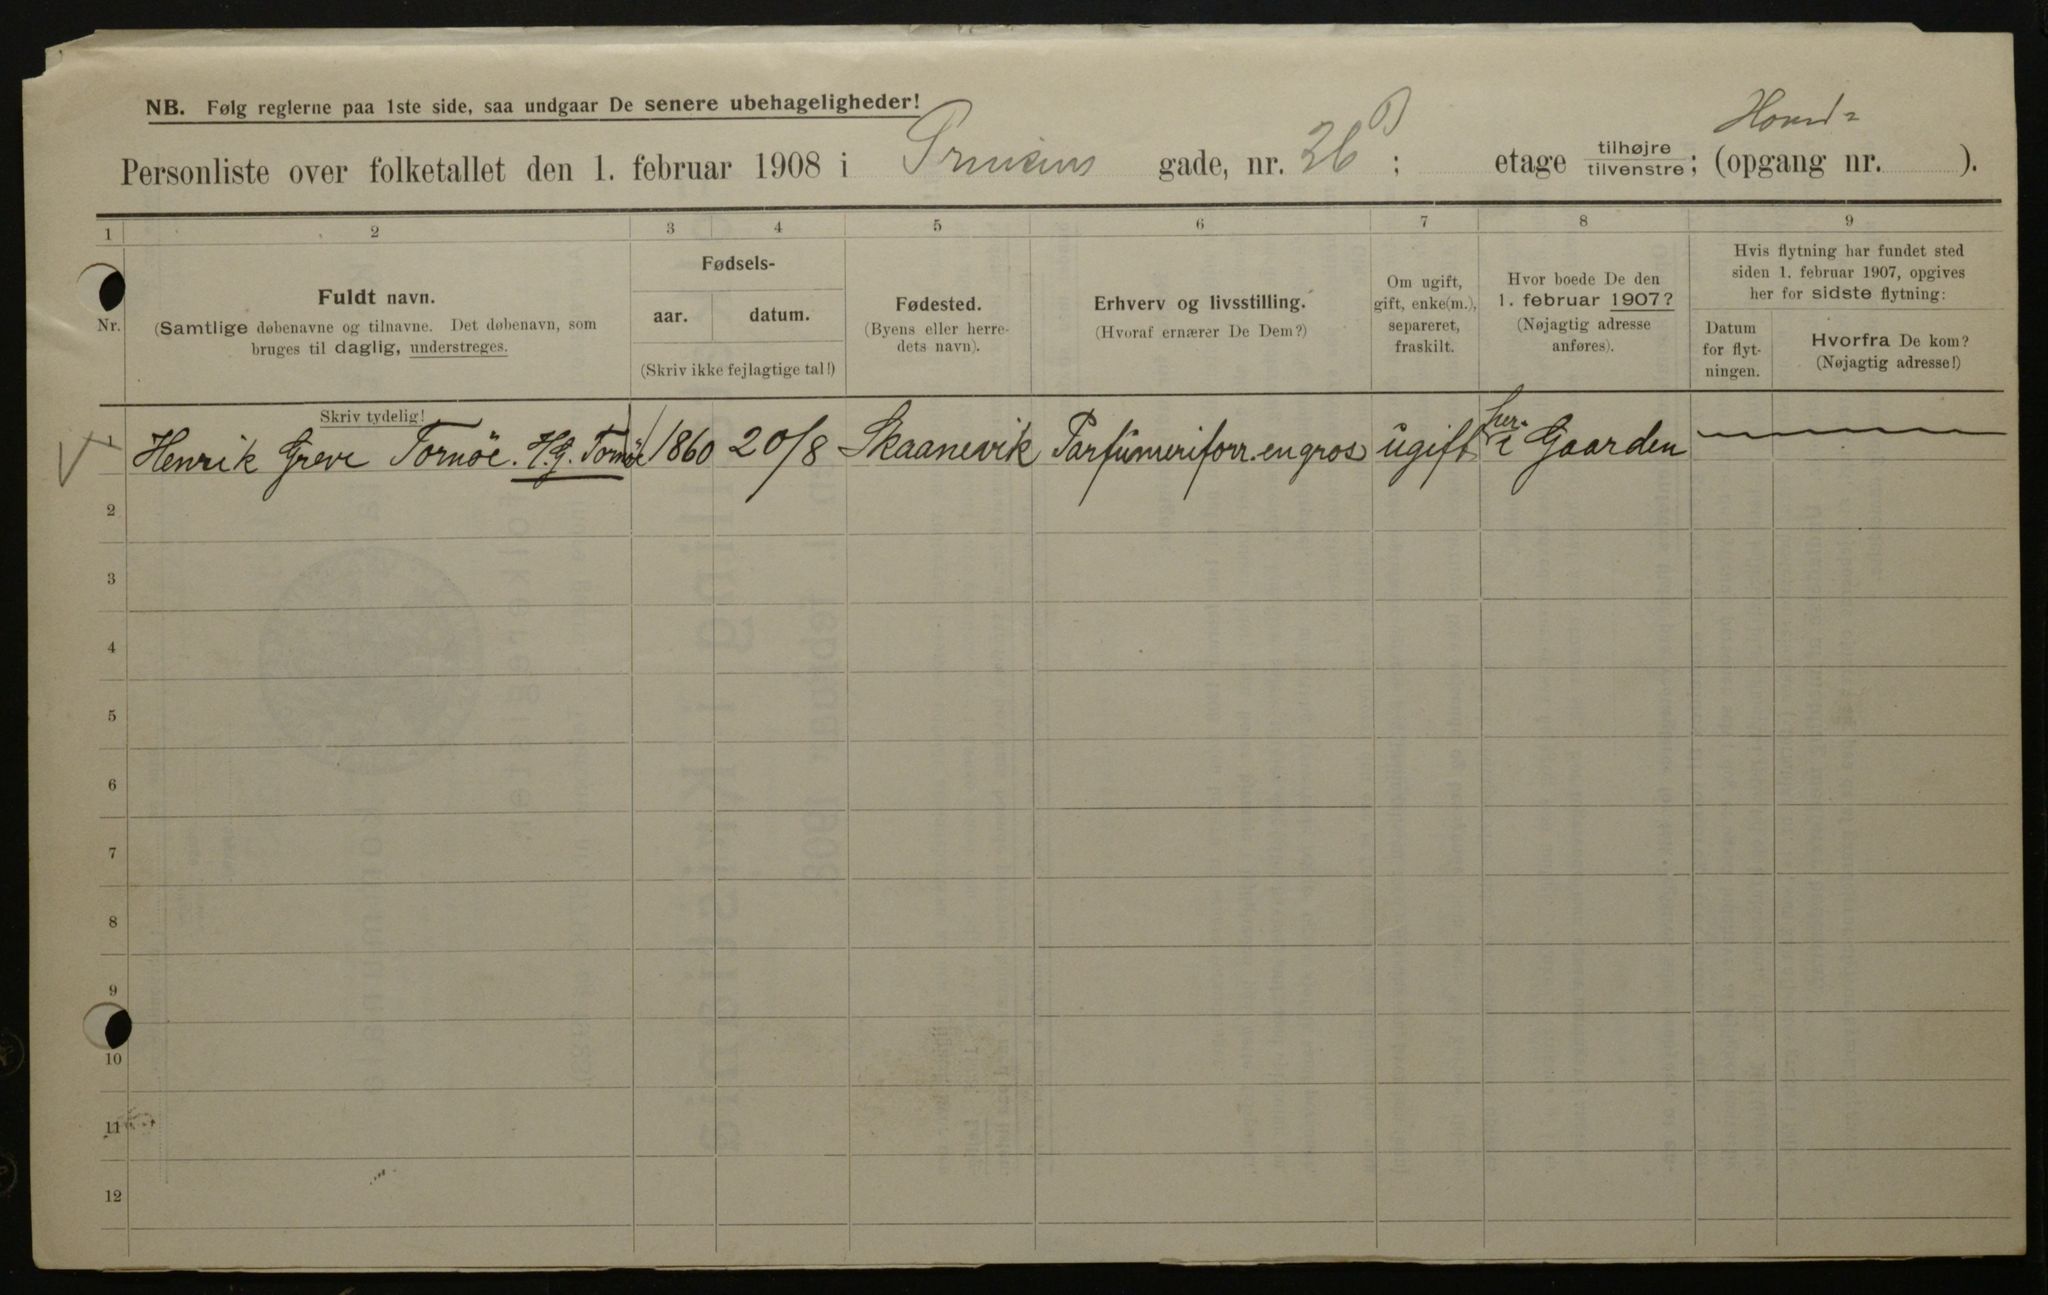 NB. Følg reglerne paa 1ste side, saa undgaar De senere ubehageligheder!
Hoved=
Personliste over folketallet den 1. februar 1908 i Prinsens gade, nr. 26 B; etage tilhøjre tilvenstre; (opgang nr. ).
1 2 3 4 5 6 7 8 9
Nr.
Fuldt navn.
(Samtlige døbenavne og tilnavne. Det døbenavn, som
bruges til daglig, understreges.
Skriv tydelig!
Fødsels-
aar. datum.
(Skriv ikke fejlagtige tal!)
Fødested.
(Byens eller herre-
dets navn).
Erhverv og livsstilling.
(Hvoraf ernærer De Dem?)
Om ugift,
gift, enke(m.),
separeret,
fraskilt.
Hvor boede De den
1. februar 1907?
(Nøjagtig adresse
anføres).
Hvis flytning har fundet sted
siden 1. februar 1907, opgives
her for sidste flytning:
Datum
for flyt-
ningen.
Hvorfra De kom?
(Nøjagtig adresse!)
1 Henrik Greve Tornöe. H.G. Tornöe 1860 20/8 Skaanevik Parfümeriforr. en gros ugift her i Gaarden
2
3
4
5
6
7
8
9
10
11
12